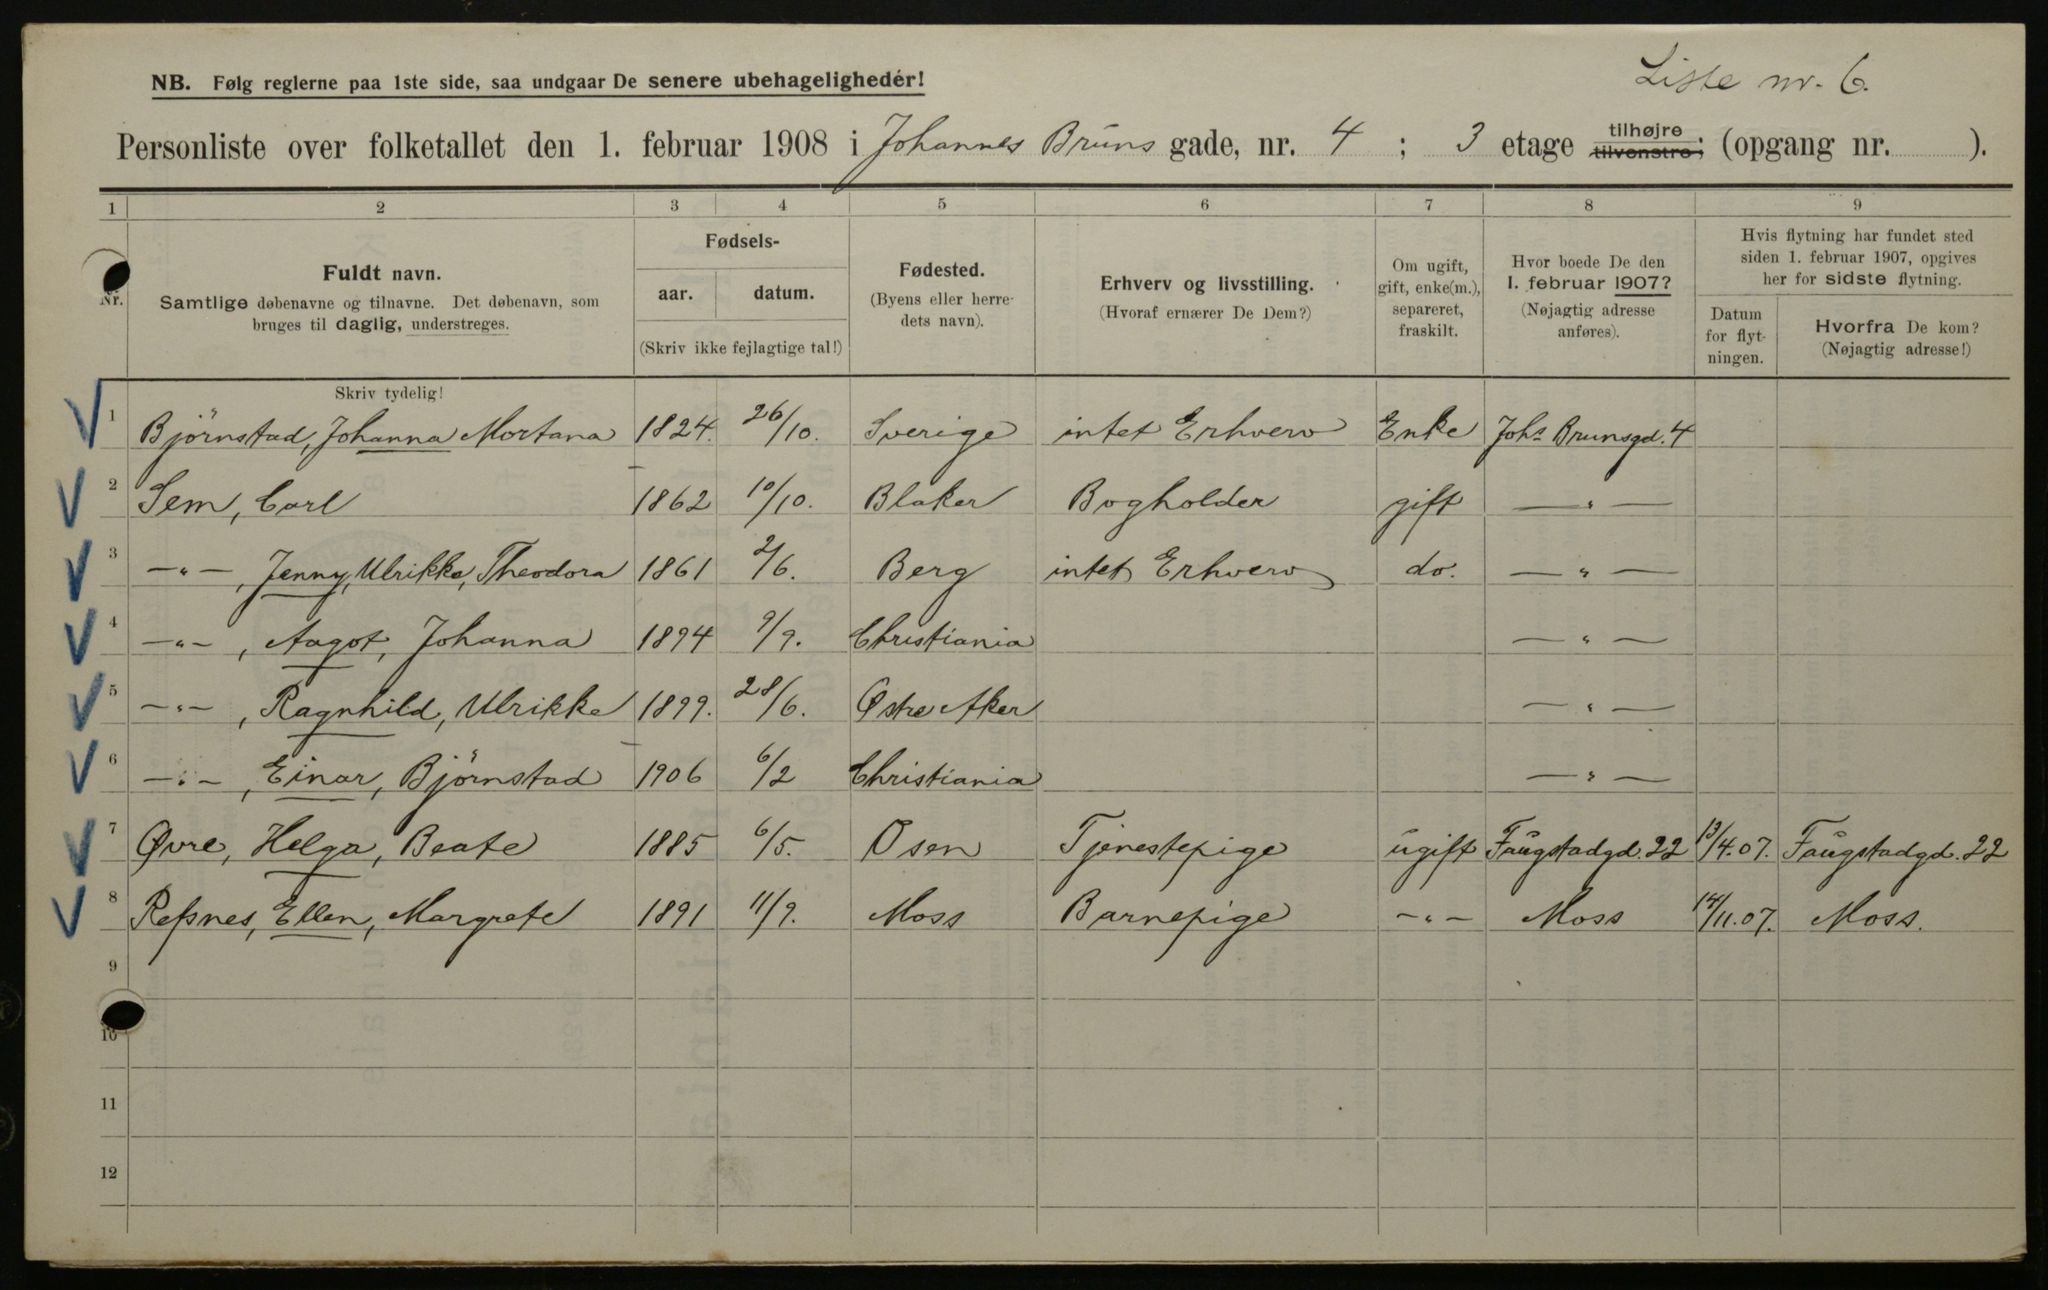 Liste nr. 6.
NB. Følg reglerne paa 1ste side, saa undgaar De senere ubehageligheder!
Personliste over folketallet den 1. februar 1908 i Johannes Bruns gade, nr. 4 ; 3 etage tilhøjre tilvenstre; (opgang nr. ).
1 2 3 4 5 6 7 8 9
Nr. Fuldt navn. Samtlige døbenavne og tilnavne. Det døbenavn, som bruges til daglig, understreges.
Fødsels- aar. datum. (Skriv ikke fejlagtige tal!)
Fødested. (Byens eller herredets navn).
Erhverv og livsstilling. (Hvoraf ernærer De Dem?)
Om ugift, gift, enke(m.), separeret, fraskilt.
Hvor boede De den 1. februar 1907? (Nøjagtig adresse anføres).
Hvis flytning har fundet sted siden 1. februar 1907, opgives her for sidste flytning.
Datum for flytningen. Hvorfra De kom? (Nøjagtig adresse!)
Skriv tydelig!
1 Björnstad, Johanna Mortana 1824. 26/10. Sverige intet Erhverv Enke Johs Brunsgd. 4
2 Sem, Carl 1862 10/10. Blaker Bogholder gift —"—
3 —"—, Jenny, Ulrikke, Theodora 1861 2/6. Berg intet Erhverv do. —"—
4 —"—, Aagot, Johanna 1894 9/9. Christiania —"—
5 —"—, Ragnhild, Ulrikke 1899. 28/6. Østre Aker —"—
6 —"—, Einar, Björnstad 1906 6/2 Christiania —"—
7 Øvre, Helga, Beate 1885 6/5. Osen Tjenestepige ugift Faugstadgd. 22 13/4.07. Faugstadgd. 22
8 Refsnes, Ellen, Margrete 1891 11/9. Moss Barnepige —"— Moss 14/11.07. Moss.
9
10
11
12